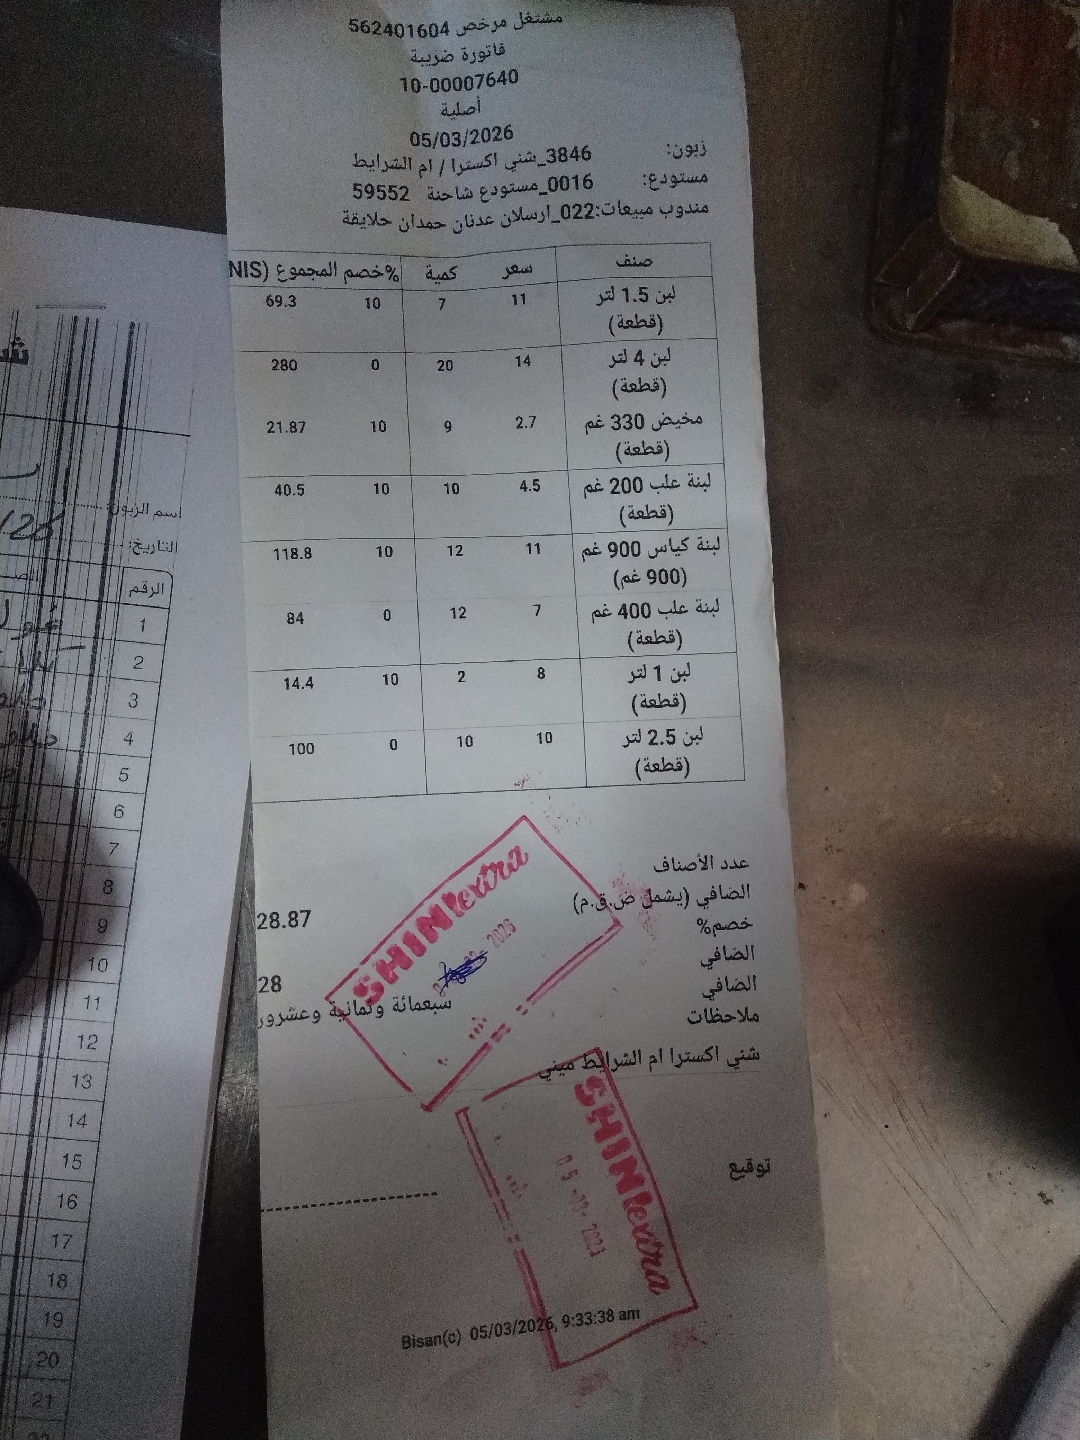 مشتغل مرخص 562401604
فاتورة ضريبة
10-00007640
أصلية
05/03/2026
زبون: 3846_شني اكسترا / ام الشرايط
مستودع: 0016_مستودع شاحنة 59552
مندوب مبيعات:022_ارسلان عدنان حمدان حلايقة
صنف سعر كمية %خصم المجموع (NIS
لبن 1.5 لتر 11 7 10 69.3
(قطعة)
لبن 4 لتر 14 20 0 280
(قطعة)
مخيض 330 غم 2.7 9 10 21.87
(قطعة)
لبنة علب 200 غم 4.5 10 10 40.5
(قطعة)
لبنة كياس 900 غم 11 12 10 118.8
(900 غم)
لبنة علب 400 غم 7 12 0 84
(قطعة)
لبن 1 لتر 8 2 10 14.4
(قطعة)
لبن 2.5 لتر 10 10 0 100
(قطعة)
عدد الأصناف
الصافي (يشمل ض.ق.م) 28.87
خصم%
الصافي
الصافي 28
ملاحظات سبعمائة وثمانية وعشرور
شني اكسترا ام الشرايط ميني
توقيع
SHINIextra
2026
SHINIextra
Bisan(c) 05/03/2026, 9:33:38 am
اسم الزبون:
التاريخ:
الرقم
1
2
3
4
5
6
7
8
9
10
11
12
13
14
15
16
17
18
19
20
21